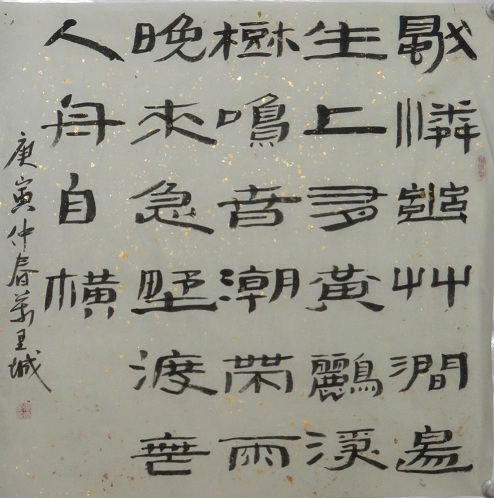 獨憐幽艸澗邊
生上多黃鸝深
樹鳴春潮帶雨
晚來急野渡無
人舟自橫
庚寅仲春萬里城